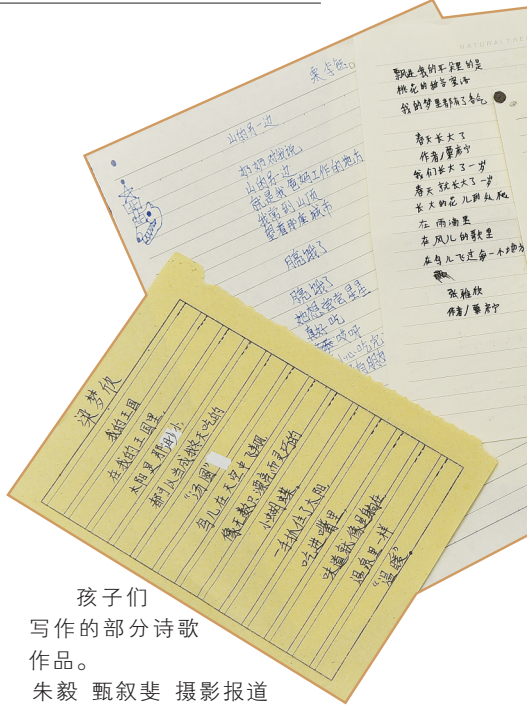 山的另一边
奶奶对我说
山的另一边
就是我爸妈工作的地方
我常到山顶
望着那座城市
月亮饿了
月亮饿了
她想尝尝星星
真好吃
飘进我的耳朵里的是
桃花的甜言蜜语
我的梦里都有了香气
春天长大了
作者/覃彦宁
我们长大了一岁
春天就长大了一岁
长大的花儿
在雨滴里
在风儿的歌里
在鸟儿飞过每一个地方
张雅欣
作者/覃彦宁
梁梦欣
我的王国
在我的王国里
太阳是那形小
都可以当成我冬天吃的
“汤圆”
鸟儿在天空中飞翔
像无数只漂亮而灵巧的
小蝴蝶。
一手抓住了太阳
吃进嘴里
味道就像是躺在
温泉里一样
“温暖”。
孩子们
写作的部分诗歌
作品。
朱毅 甄叙斐 摄影报道